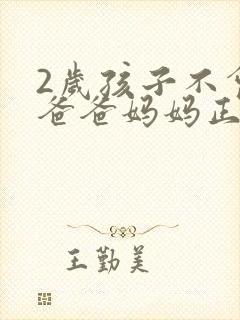 2岁孩子不
爸爸妈妈正
王勤美